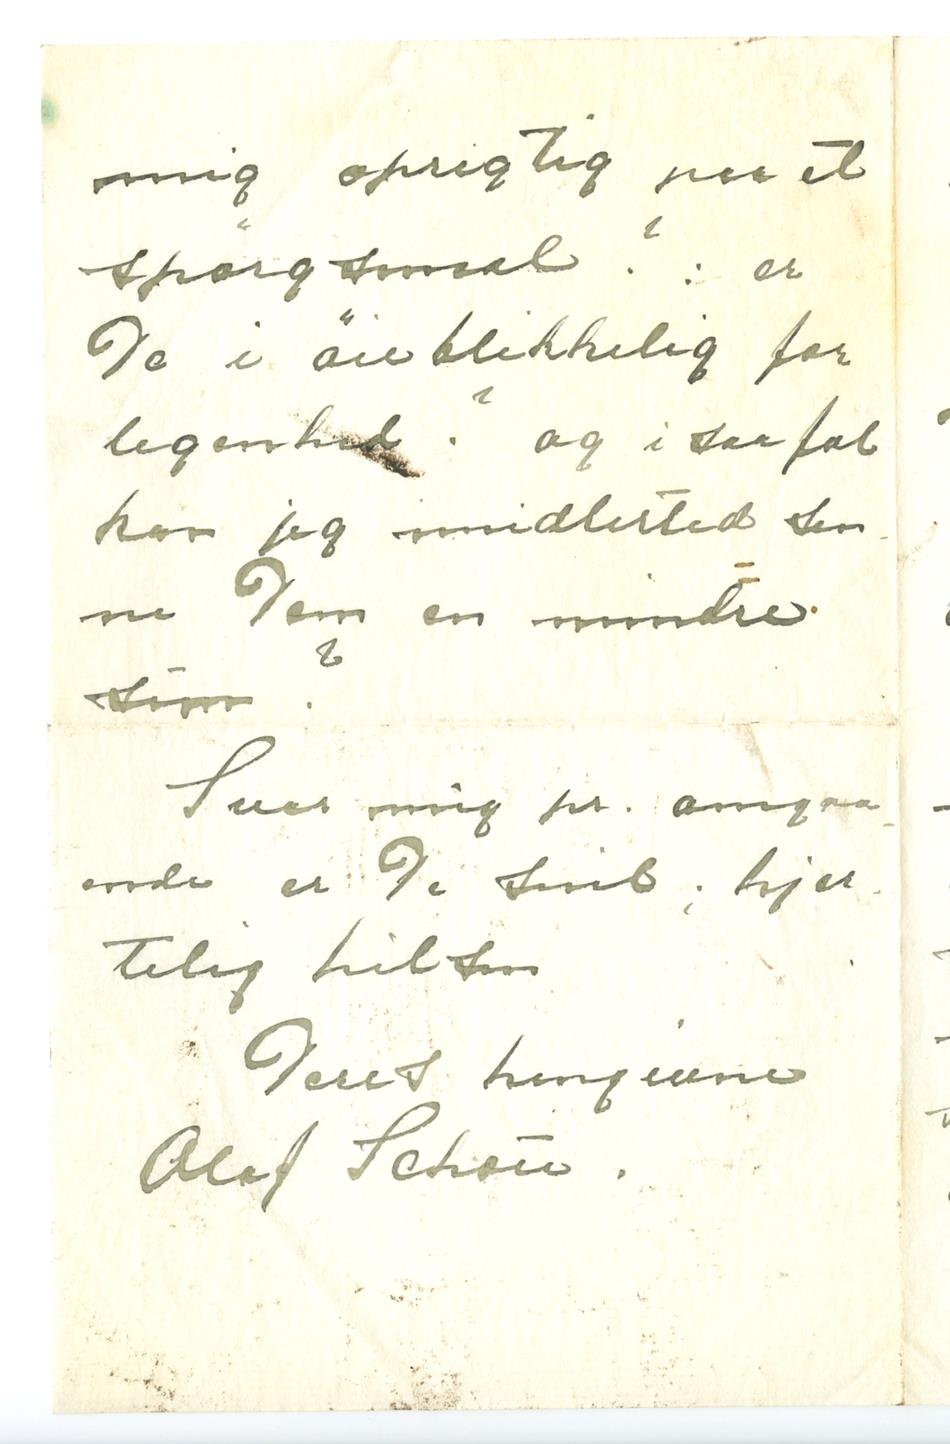 mig oprigtig paa et
spörgsmaal ? : er
De i öieblikkelig for
legenhed ? og i saa fal
kan jeg imidlertid sen-
ne Dem en mindre
sum ?
Svar mig pr. omgaa-
ende er De snil ; hjer-
telig hilsen
Deres hengivne
Olaf Schou .